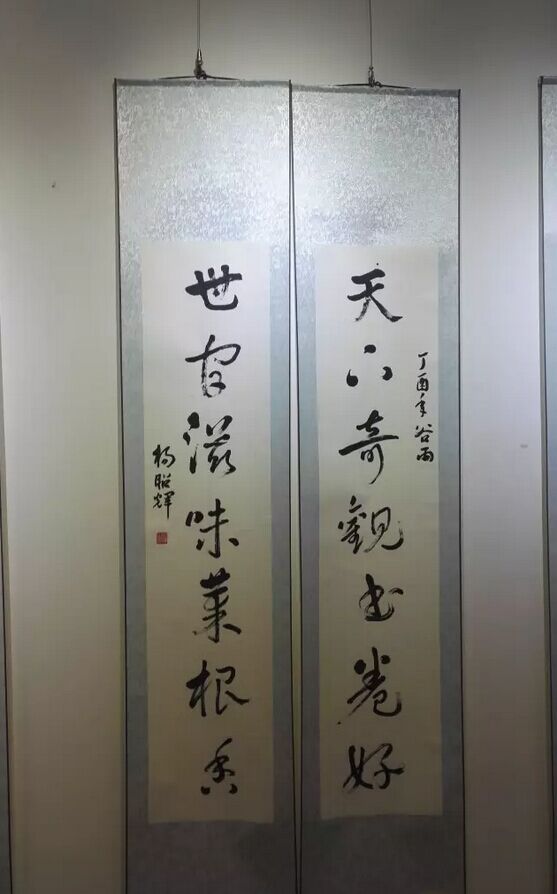 天下奇觀书卷好
丁酉年谷雨
世间滋味菜根香
杨昭辉